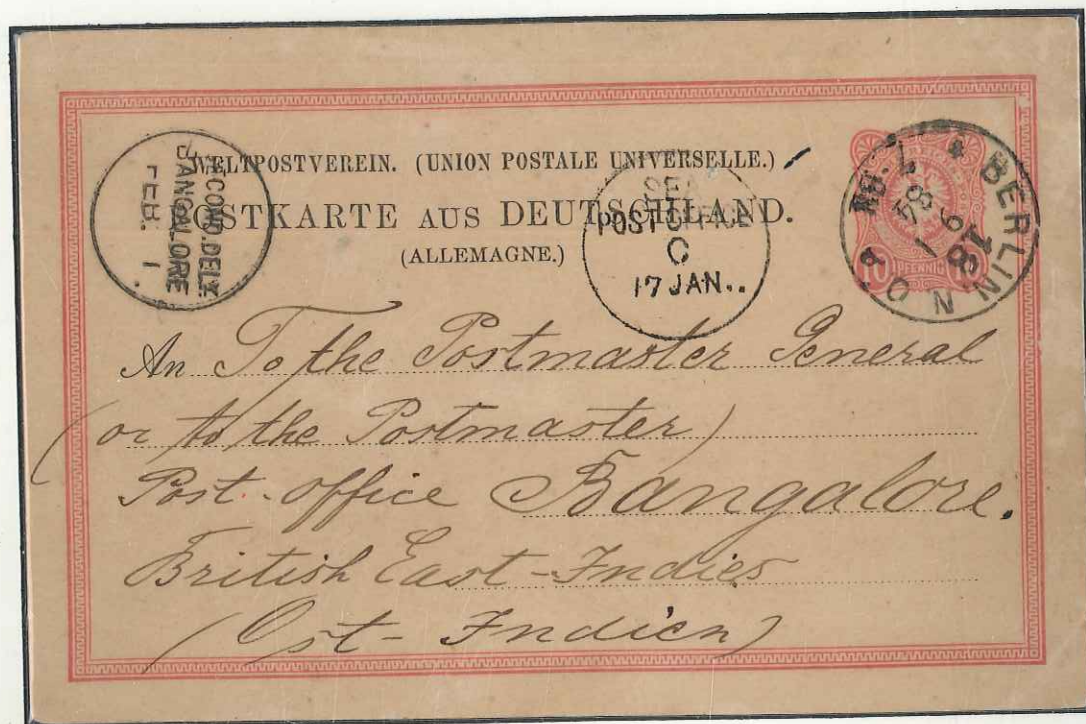 WELTPOSTVEREIN. (UNION POSTALE UNIVERSELLE.)
POSTKARTE AUS DEUTSCHLAND.
(ALLEMAGNE.)
BANGALORE
FEB. 1
SEA
POST OFFICE
C
17 JAN..
BERLIN N
10 PFENNIG 10
An To the Postmaster General
(or to the Postmaster)
Post-office Bangalore.
British East-Indies
(Ost-Indien)